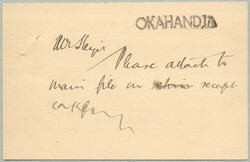 OKAHANDJA
Please attach to
main file on receipt